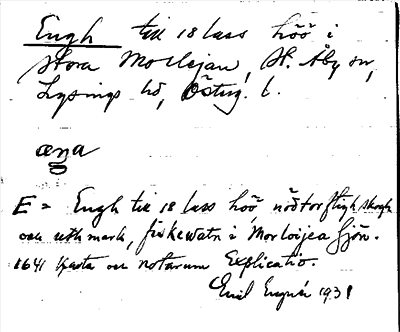 Engh till 18 lass höö i
stora Morlejan, St. Åby sn,
Lysings hd, Östug. l.
æŋa
E = Engh till 18 lass höö, nödtorftigh skogh
och uthmark, fiskewatn i Morloijea sjön.
1641 Charta och notarum Explicatio.
Emil 1931